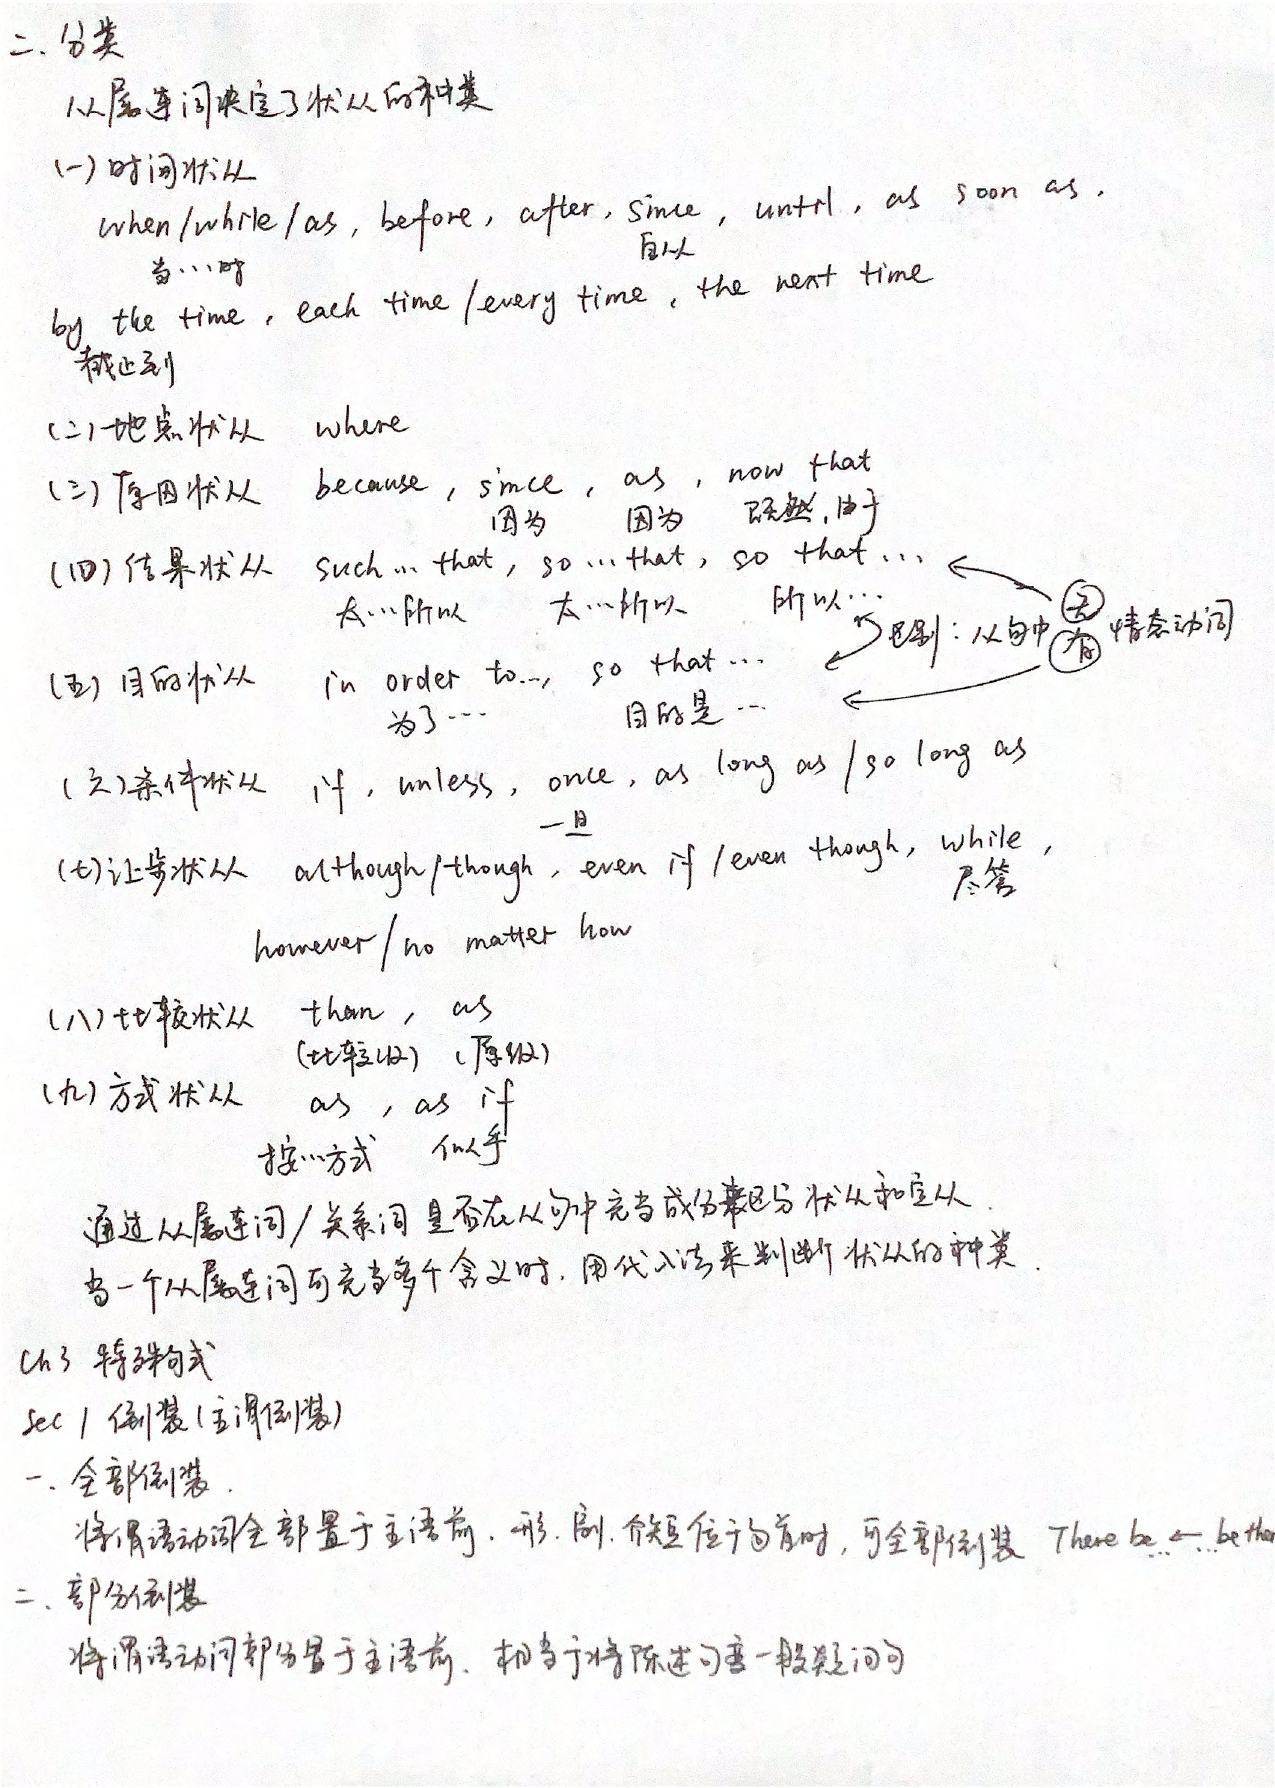 二、分类
从属连词决定了状从的种类
(一)时间状从
when/while/as, before, after, since, until, as soon as,
当…时 自从
by the time, each time/every time, the next time
截止到
(二)地点状从 where
(三)原因状从 because, since, as, now that
因为 因为 既然,由于
(四)结果状从 such…that, so…that, so that…
太…所以 太…所以 所以…
区别:从句中 无 有 情态动词
(五)目的状从 in order to…, so that…
为了… 目的是…
(六)条件状从 if, unless, once, as long as/so long as
一旦
(七)让步状从 although/though, even if/even though, while,
尽管
however/no matter how
(八)比较状从 than, as
(比较级) (原级)
(九)方式状从 as, as if
按…方式 似乎
通过从属连词/关系词是否在从句中充当成分来区分状从和定从.
当一个从属连词可充当多个含义时,用代入法来判断状从的种类.
Ch3 特殊句式
Sec 1 倒装(主谓倒装)
一、全部倒装.
将谓语动词全部置于主语前.形.副.介短位于句首时,可全部倒装 There be…←…be ther
二、部分倒装
将谓语动词部分置于主语前、相当于将陈述句变一般疑问句